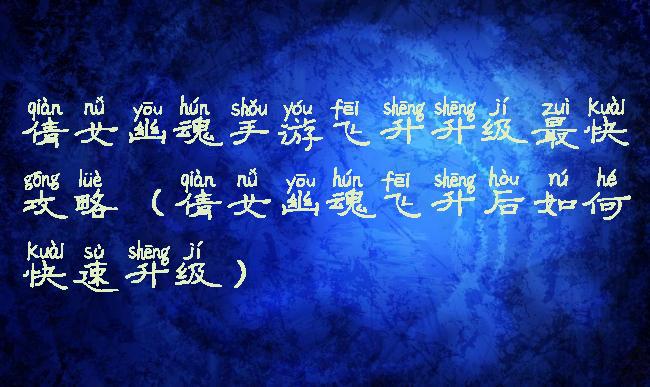 qiàn nǚ yōu hún shǒu yóu fēi shēng shēng jí zuì kuài
倩女幽魂手游飞升升级最快
gōng lüè qiàn nǚ yōu hún fēi shēng hòu rú hé
攻略(倩女幽魂飞升后如何
kuài sù shēng jí
快速升级)